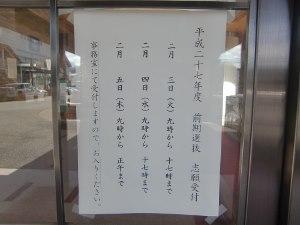 平成二十七年度　前期選抜　志願受付
二月　三日（火）九時から　十七時まで
二月　四日（水）九時から　十七時まで
二月　五日（木）九時から　正午まで
事務室にて受付しますので、お入りください。